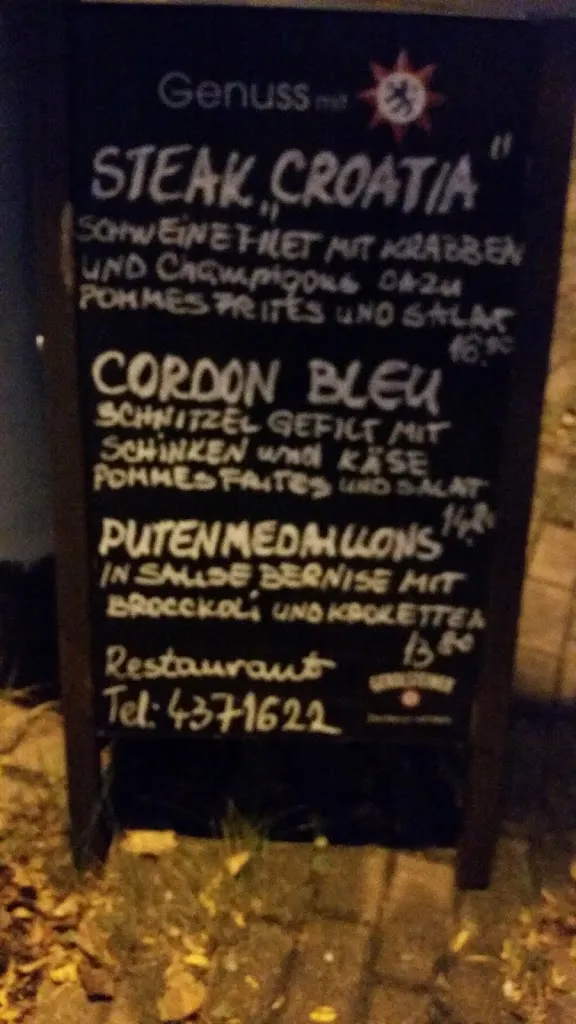 Genuss mit
STEAK „CROATIA"
SCHWEINEFILET MIT KRABBEN
UND Champigons DAZU
POMMES FRITES UND SALAT
16.90
CORDON BLEU
SCHNITZEL GEFILT MIT
SCHINKEN und KÄSE
POMMES FRITES UND SALAT
14,80
PUTENMEDAILLONS
IN SAUSE BERNISE MIT
BROCCKOLI UND KROKETTEN
13.80
Restaurant
Tel: 4371622
GEROLSTEINER